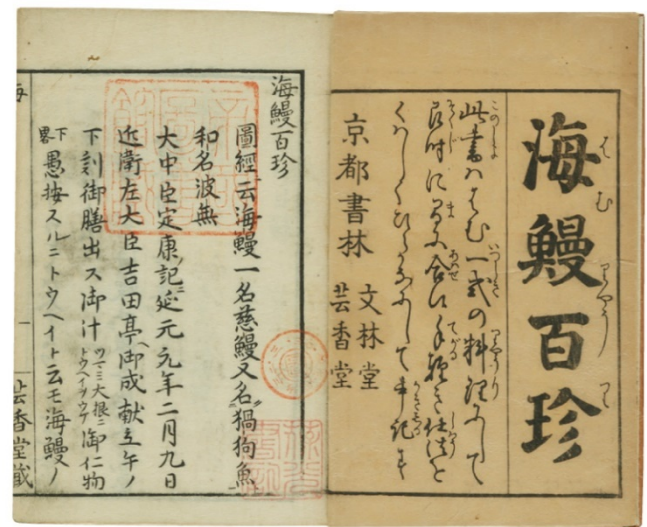 海鰻百珍
此書ハはむ一式の料理にして
時に間に合ひ手軽き仕法を
くはしくひらがなにして書記す
京都書林
文林堂
芸香堂
海鰻百珍
圖經云海鰻一名慈鰻又名猧狗魚
和名波無
大中臣定康ノ記ニ延元元年二月九日
近衛左大臣吉田亭ヘ御成献立午ノ
下刻御膳出ス御汁ツマミ大根ニ御仁物
下畧愚按スルニトウヘイト云モ海鰻ノ
海
一
芸香堂蔵